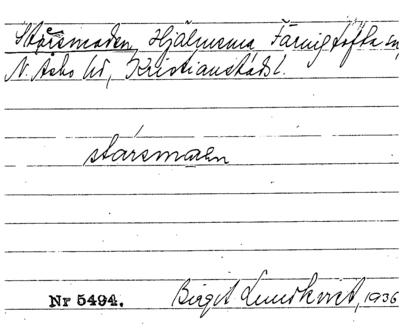 Starsmaden, Hjälmerna Färingtofta sn,
N. Åsbo hd, Kristianstads l.
starsmaen
Nr 5494. Birgit Lundkvist, 1936